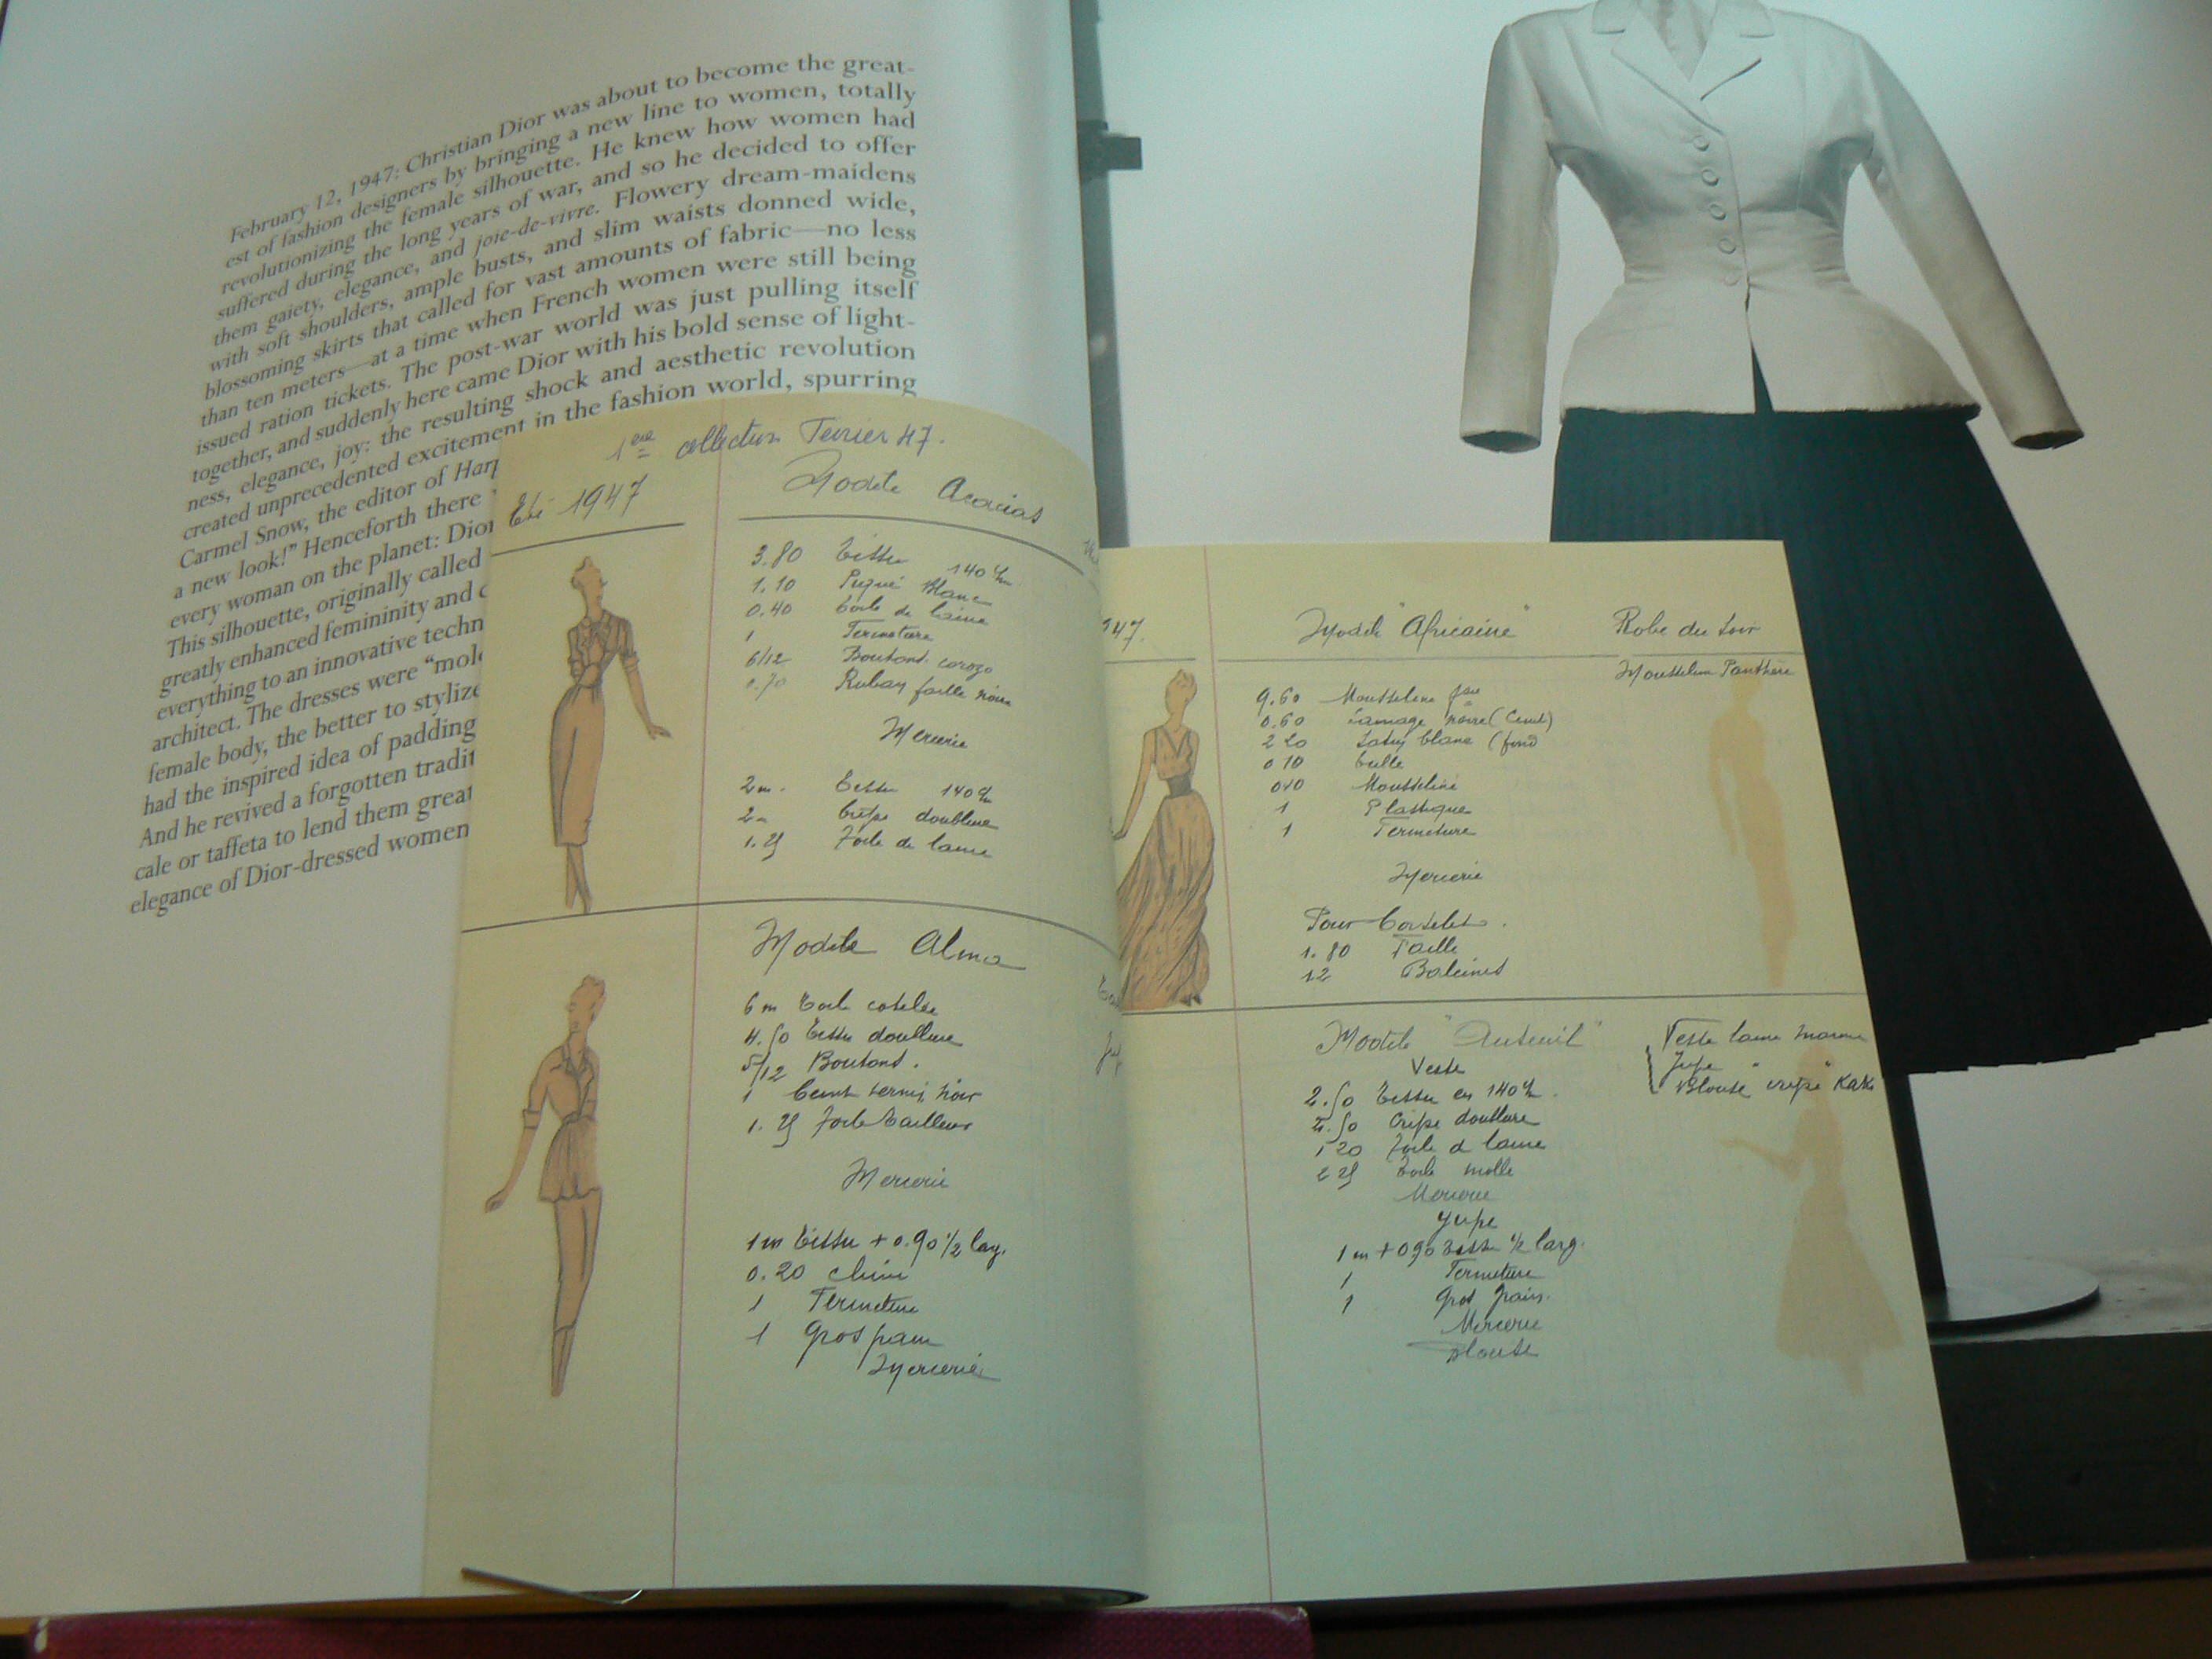 February 12, 1947: Christian Dior was about to become the great-
est of fashion designers by bringing a new line to women, totally
revolutionizing the female silhouette. He knew how women had
suffered during the long years of war, and so he decided to offer
them gaiety, elegance, and joie-de-vivre. Flowery dream-maidens
with soft shoulders, ample busts, and slim waists donned wide,
blossoming skirts that called for vast amounts of fabric—no less
than ten meters—at a time when French women were still being
issued ration tickets. The post-war world was just pulling itself
together, and suddenly here came Dior with his bold sense of light-
ness, elegance, joy: the resulting shock and aesthetic revolution
created unprecedented excitement in the fashion world, spurring
Carmel Snow, the editor of Harp
a new look!" Henceforth there
every woman on the planet: Dior
This silhouette, originally called
greatly enhanced femininity and
everything to an innovative techn
architect. The dresses were "mol
female body, the better to stylize
had the inspired idea of padding
And he revived a forgotten tradit
cale or taffeta to lend them great
elegance of Dior-dressed women
1ere collection Fevrier 47.
Eté 1947
Modèle Acacias
3.80 Tissu 140 c/m
1.10 Piqué blanc
0.40 Toile de laine
1 Fermeture
6/12 Boutons corozo
Ruban faille noir
Mercerie
2m. Tissu 140 c/m
2m Crêpe doublure
1.25 Toile de laine
Modèle Alma
6 m Toile cotelée
4.50 Tissu doublure
5/12 Boutons.
1 Ceint vernis noir
1.25 Toile tailleur
Mercerie
1m Tissu + 0.90 1/2 larg.
0.20
1 Fermeture
1 Gros grain
Mercerie
947.
Modèle "Africaine"
Robe du soir
Mousseline Panthère
9.60 Mousseline
0.60 noire (Ceint)
2 20 Satin blanc (fond
0 10 Tulle
040 Mousseline
1 Plastique
1 Fermeture
Mercerie
Pour Corselet.
1.80 Faille
12 Baleines
Modèle "Auteuil"
Veste laine marine
Jupe "
Blouse crêpe kaki
Veste
2.50 Tissu en 140 c/m.
2.50 Crêpe doublure
1 20 Toile d laine
2 25 Toile molle
Mercerie
Jupe
1 m + 090 Tissu 1/2 larg.
1 Fermeture
1 Gros grain.
Mercerie
Blouse